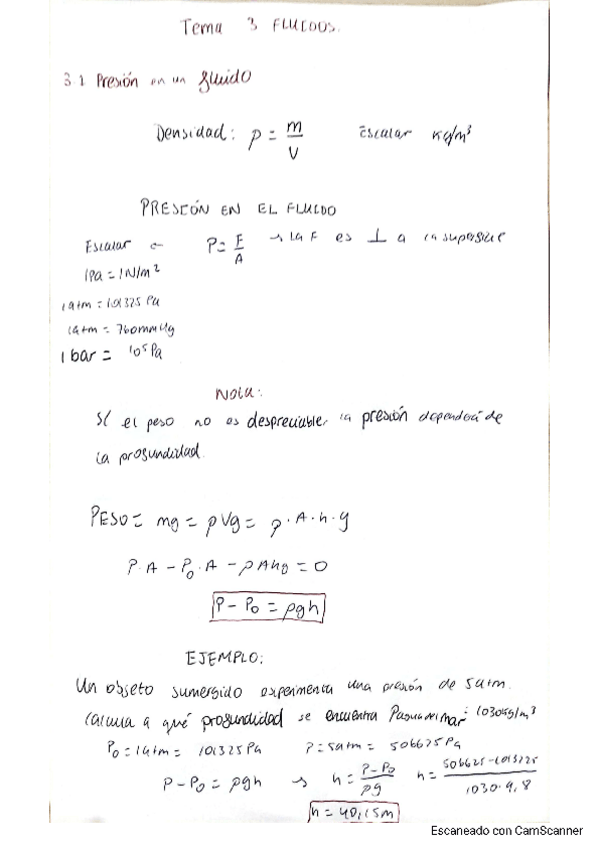 Tema 3 FLUIDOS.
3.1 Presión en un fluido
Densidad: ρ = m/V Escalar kg/m³
PRESIÓN EN EL FLUIDO
Escalar ← P = F/A → la F es ⊥ a la superficie
1Pa = 1N/m²
1atm = 101325 Pa
1atm = 760mmHg
1 bar = 10⁵ Pa
Nota:
Si el peso no es despreciable, la presión dependerá de
la profundidad.
PESO = mg = ρVg = ρ·A·h·g
P·A - P₀·A - ρAhg = 0
P - P₀ = ρgh
EJEMPLO:
Un objeto sumergido experimenta una presión de 5atm.
Calcula a qué profundidad se encuentra ρagua del mar: 1030kg/m³
P₀ = 1atm = 101325Pa P = 5atm = 506625 Pa
P - P₀ = ρgh → h = P-P₀/ρg h = 506625-101325/1030·9,8
h = 40,15m
Escaneado con CamScanner